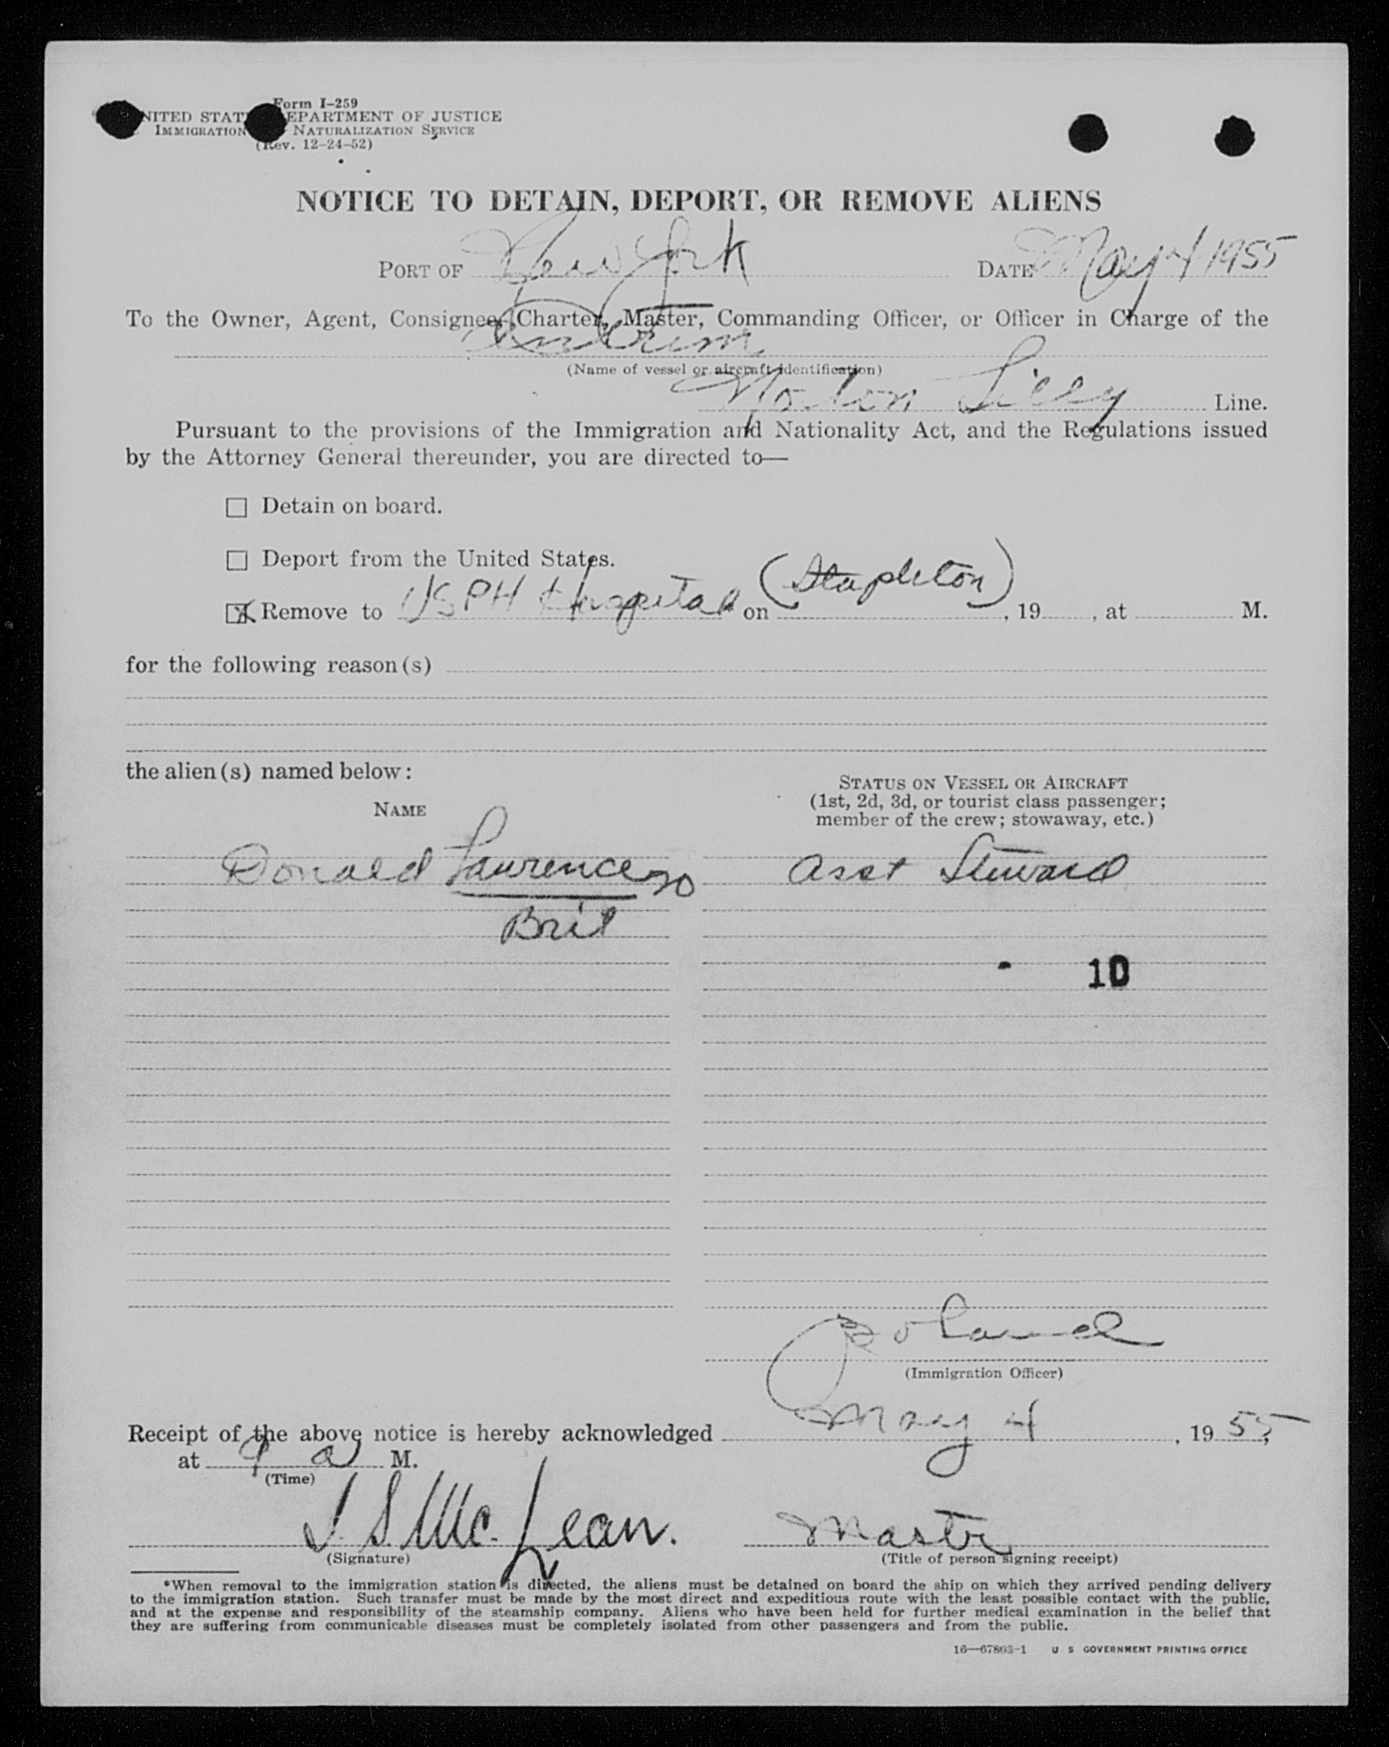 Form I-259
UNITED STATES DEPARTMENT OF JUSTICE
IMMIGRATION NATURALIZATION SERVICE
(Rev. 12-24-52)
NOTICE TO DETAIN, DEPORT, OR REMOVE ALIENS
PORT OF New York DATE May 4 1955
To the Owner, Agent, Consignee, Charter, Master, Commanding Officer, or Officer in Charge of the
Antrim
(Name of vessel or aircraft identification)
Norton Lilly Line.
Pursuant to the provisions of the Immigration and Nationality Act, and the Regulations issued
by the Attorney General thereunder, you are directed to—
☐ Detain on board.
☐ Deport from the United States.
☒ Remove to USPH Hospital on (Stapleton), 19, at M.
for the following reason(s)
the alien(s) named below:
NAME
STATUS ON VESSEL OR AIRCRAFT
(1st, 2d, 3d, or tourist class passenger;
member of the crew; stowaway, etc.)
Donald Lawrence 20 Asst Steward
Brit
10
(Immigration Officer)
Receipt of the above notice is hereby acknowledged May 4, 1955,
at 9 a M.
(Time)
J. S. McLean. Mastr
(Signature) (Title of person signing receipt)
*When removal to the immigration station is directed, the aliens must be detained on board the ship on which they arrived pending delivery
to the immigration station. Such transfer must be made by the most direct and expeditious route with the least possible contact with the public,
and at the expense and responsibility of the steamship company. Aliens who have been held for further medical examination in the belief that
they are suffering from communicable diseases must be completely isolated from other passengers and from the public.
16—67803-1 U S GOVERNMENT PRINTING OFFICE